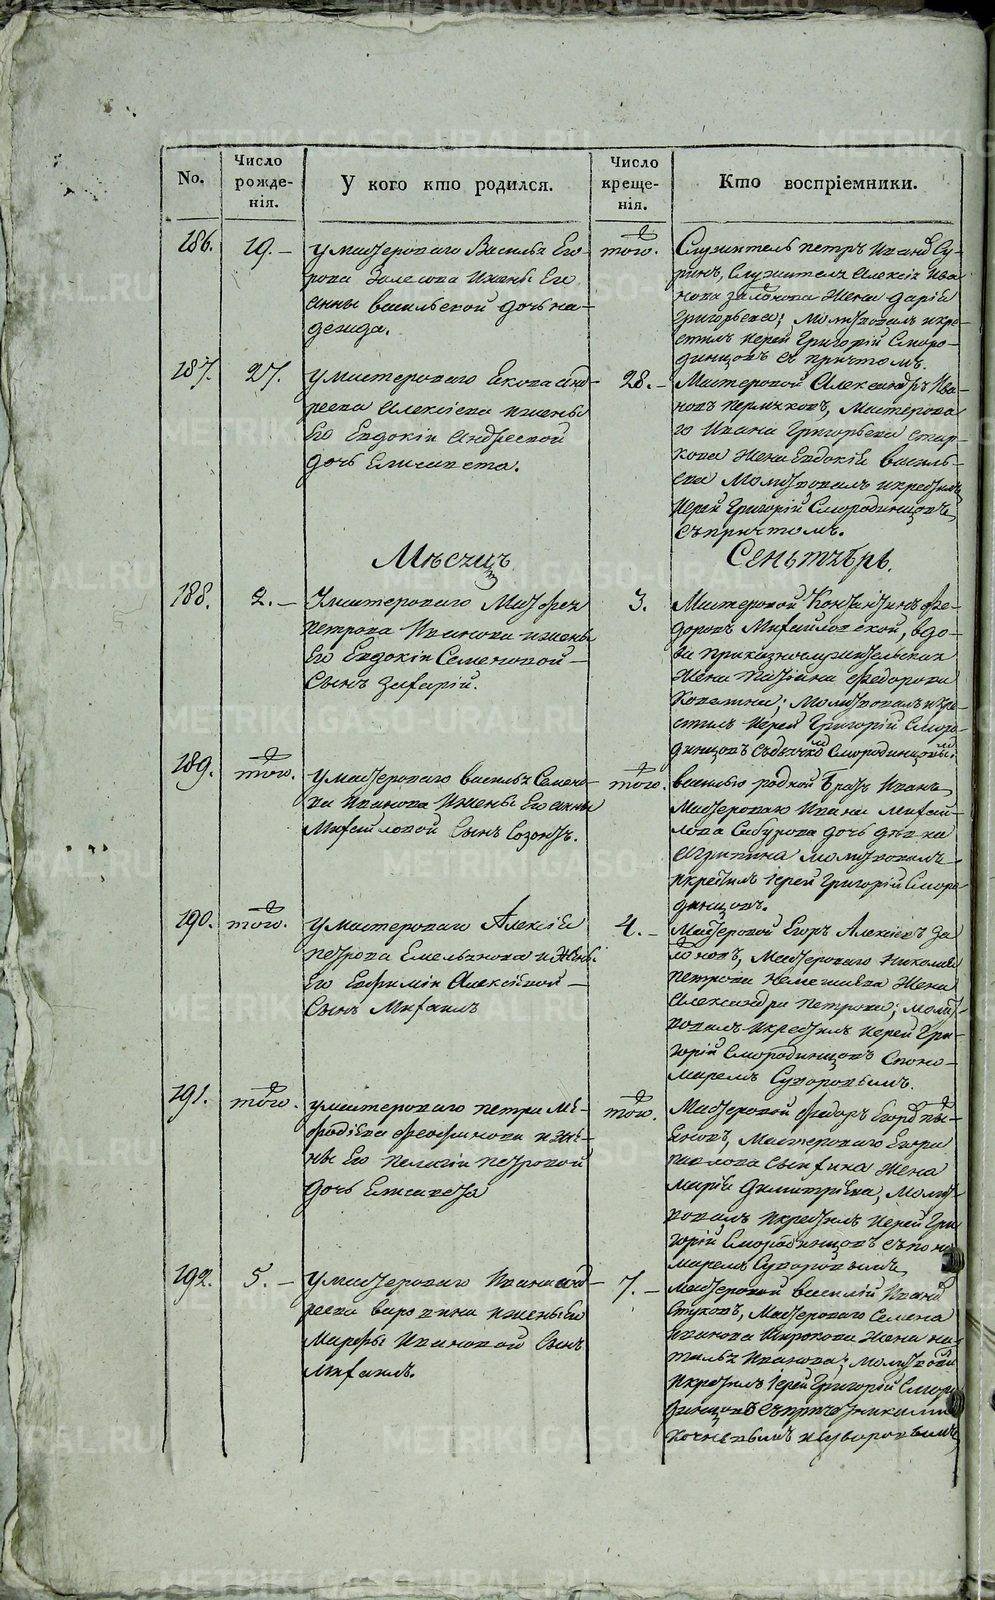 METRIKI.GASO-URAL.RU
No.
Число рожденія.
У кого кто родился.
Число крещенія.
Кто воспріемники.
186.
19.
у мастероваго Василья Его-
рова Залесова и жены Его
Анны Васильевой дочь На-
дежда.
того.
Служитель Петръ Иванов Су-
ринъ, Служителя Алексія Ива-
нова жена Дарія
Григорьева; Молитвовалъ и кре-
стилъ Іерей Григорій Сморо-
динцовъ съ причтомъ.
187.
27.
у мастероваго Якова Анд-
реева Алексіева и жены
Его Евдокіи Андреевой
дочь Елисавета.
28.
Мастеровой Александръ Ива-
новъ Пермяковъ, Мастерова-
го Ивана Григорьева
жена Евдокія Василь-
ева Молитвовалъ и крестилъ
Іерей Григорій Смородинцовъ
съ причтомъ.
Мѣсяцъ
Сентябрь.
188.
2.
У мастероваго Матфея
Петрова Иванова и жены
Его Евдокіи Семеновой
Сынъ Захарій.
3.
Мастеровой Констянтинъ Фе-
доровъ Михайловской, вдо-
ва приказнослужительская
жена Федорова
Молитвовалъ и кре-
стилъ Іерей Григорій Сморо-
динцовъ съ дьячком Смородинцовым
189.
того.
у мастероваго Василья Семено-
ва Иванова и жены Его Анны
Михайловой Сынъ Созонтъ.
того.
Василью родной братъ Иванъ
Мастероваго Ивана Михай-
лова Сабурова дочь девка
Агрипина молитвовалъ
и крестилъ Іерей Григорій Сморо-
динцовъ.
190.
того.
у мастероваго Алексія
Петрова Емельянова и жены
Его Евфиміи Алексіевой
Сынъ Михаилъ
4.
Мастеровой Егоръ Алексіевъ
Мастероваго Николая
Петрова жена
Александра Петрова; молит-
вовалъ и крестилъ Іерей Гри-
горій Смородинцовъ с поно-
маремъ Суворовымъ.
191.
того.
у мастероваго Петра Ме-
фодіева Феофанова и же-
ны Его Пелагіи Петровой
дочь Елисавета
того.
Мастеровой Федоръ Егоров
Мастероваго Егора
Павлова жена
Марія Димитріева, Молит-
вовалъ и крестилъ Іерей Гри-
горій Смородинцовъ с поно-
маремъ Суворовымъ
192.
5.
у мастероваго Ивана Анд-
реева и жены Его
Марфы Ивановой Сынъ
Михаилъ.
7.
Мастеровой Василій Иванов
Стуковъ, Мастероваго Семена
Иванова Широкова жена На-
талья Иванова; молитвовал
и крестилъ Іерей Григорій Сморо-
динцовъ с причетниками
и Суворовымъ